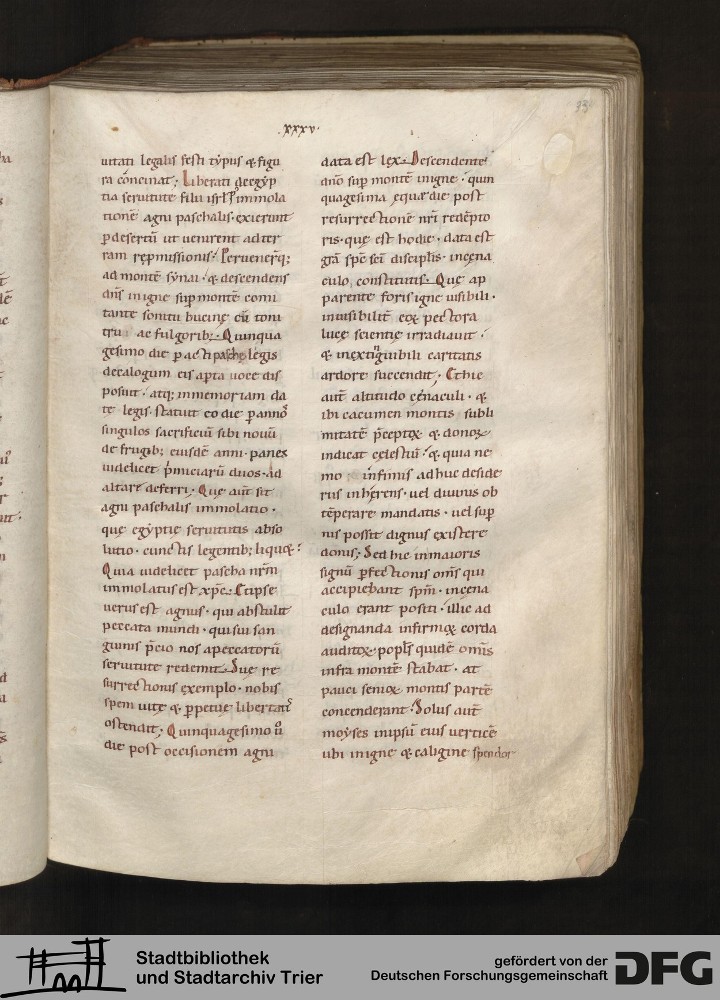 .xxxv.
33
uitati legalis festi typus & figu
ra c̄oncinat; Liberati de egyp
tia seruitute filii isrl̄ p̱ immola
tionē agni paschalis. exierunt
ꝑ desertū ut uenirent ad ter
ram repmissionis. Peruenerq;
ad montē synai. & descendens
dn̄s in igne sup̱ montē comi
tante sonitu bucinę cū toni
tru. ac fulgorib; Quinqua
gesimo die ꝑacti paschę legis
decalogum eis aperta uoce dis
posuit. atq; in memoriam da
tę legis. statuit eo die ꝑ annos
singulos sacrificiū sibi nouū
de frugib; eiusdē anni. panes
uidelicet p̄miciarū duos. ad
altare deferri. Quę aūt sit
agni paschalis immolatio.
quę egyptię seruitutis abso
lutio. cunctis legentib; liquet.
Quia uidelicet pascha nrm̄
immolatus est xp̄c. & ipse
uerus est agnus. qui abstulit
peccata mundi. qui sui san
guinis p̄cio nos a peccatorū
seruitute redemit. Suę re
surrectionis exemplo. nobis
spem uitę & ꝑpetuę libertatis
ostendit; Quinquagesimo ū
die post occisionem agni
data est lex. Descendente
dn̄o sup̱ montē in igne. quin
quagesima ęque die post
resurrectionē nr̄i redēpto
ris. quę est hodie. data est
grā sp̄c sc̄i discipl̄is. in cęna
culo constitutis. Quę ap
parente foris igne uisibili.
inuisibilit̄ eoꝝ pectora
lucę scientię irradiauit.
& inextinguibili caritatis
ardore succendit; & hic
aūt altitudo cęnaculi. &
ibi cacumen montis subli
mitatē p̄ceptoꝝ & donoꝝ
indicat cęlestiū. & quia ne
mo infimis adhuc deside
riis inhęrens. uel diuinis ob
tēperare mandatis. uel sup̱
nis possit dignus existere
donis; Sed hic in maioris
signū ꝑfectionis om̄s qui
accipiebant sp̄m. in cęna
culo erant positi. illic ad
designanda infirmoꝝ corda
auditoꝝ. popl̄s quidē omīs
infra montē stabat. at
pauci senioꝝ montis partē
concenderant. Solus aūt
moyses in ipsū eius uerticē
ubi in igne & caligine spendor
Stadtbibliothek
und Stadtarchiv Trier
gefördert von der
Deutschen Forschungsgemeinschaft
DFG